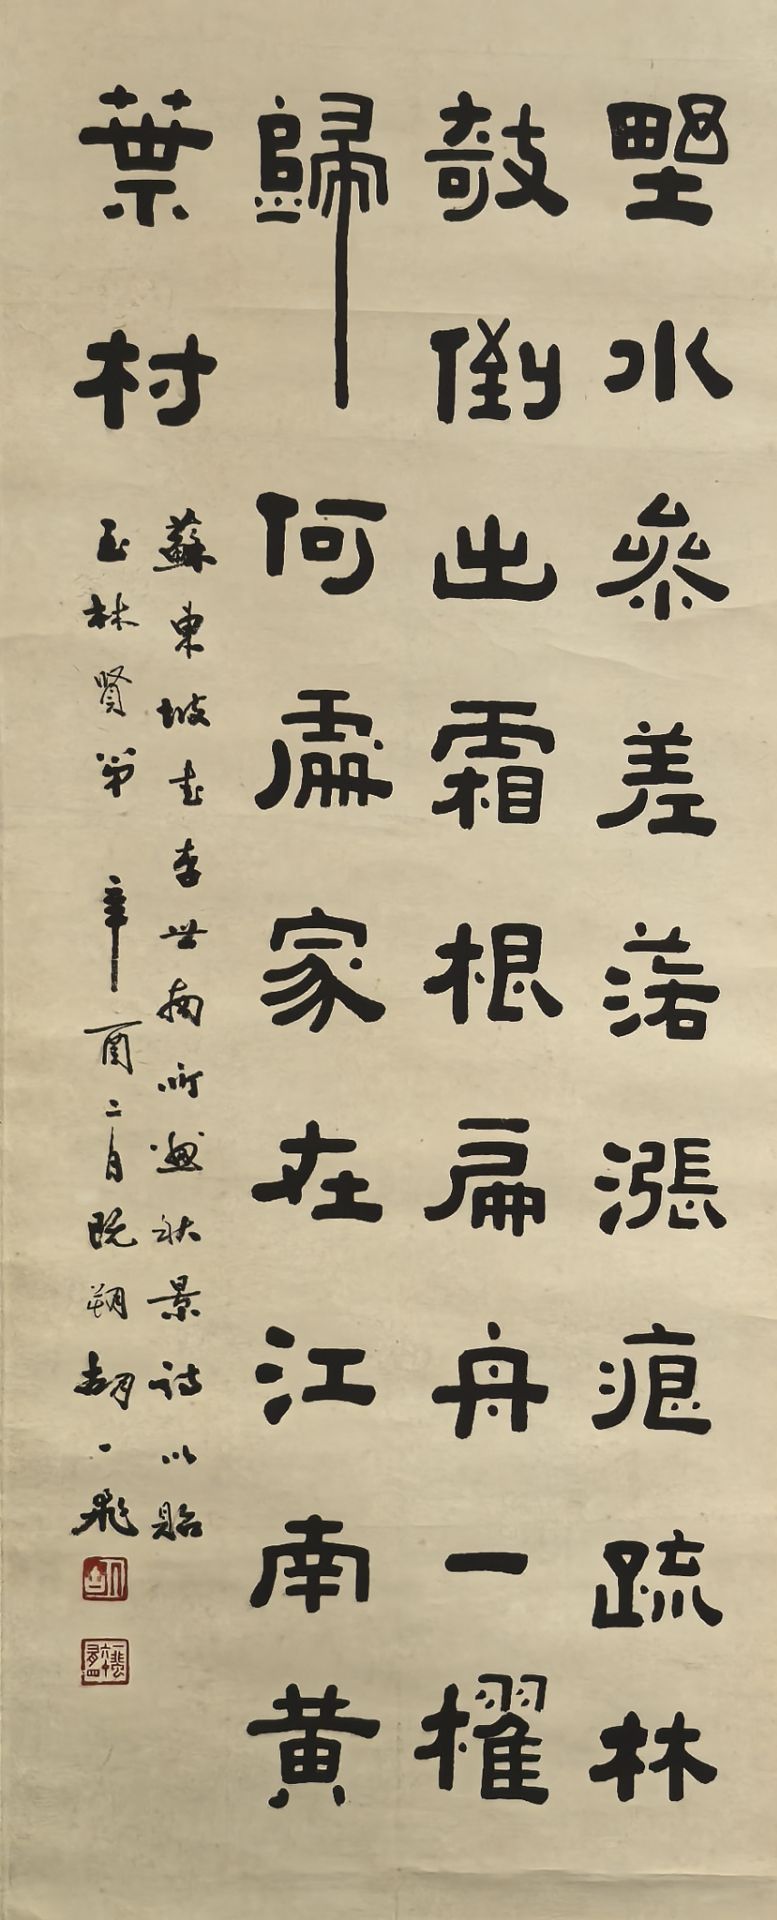 野水參差落漲痕疏林
攲倒出霜根扁舟一櫂
歸何處家在江南黃
葉村
蘇東坡書李世南所畫秋景詩以貽
玉林賢弟 辛酉二月既朔胡一飛